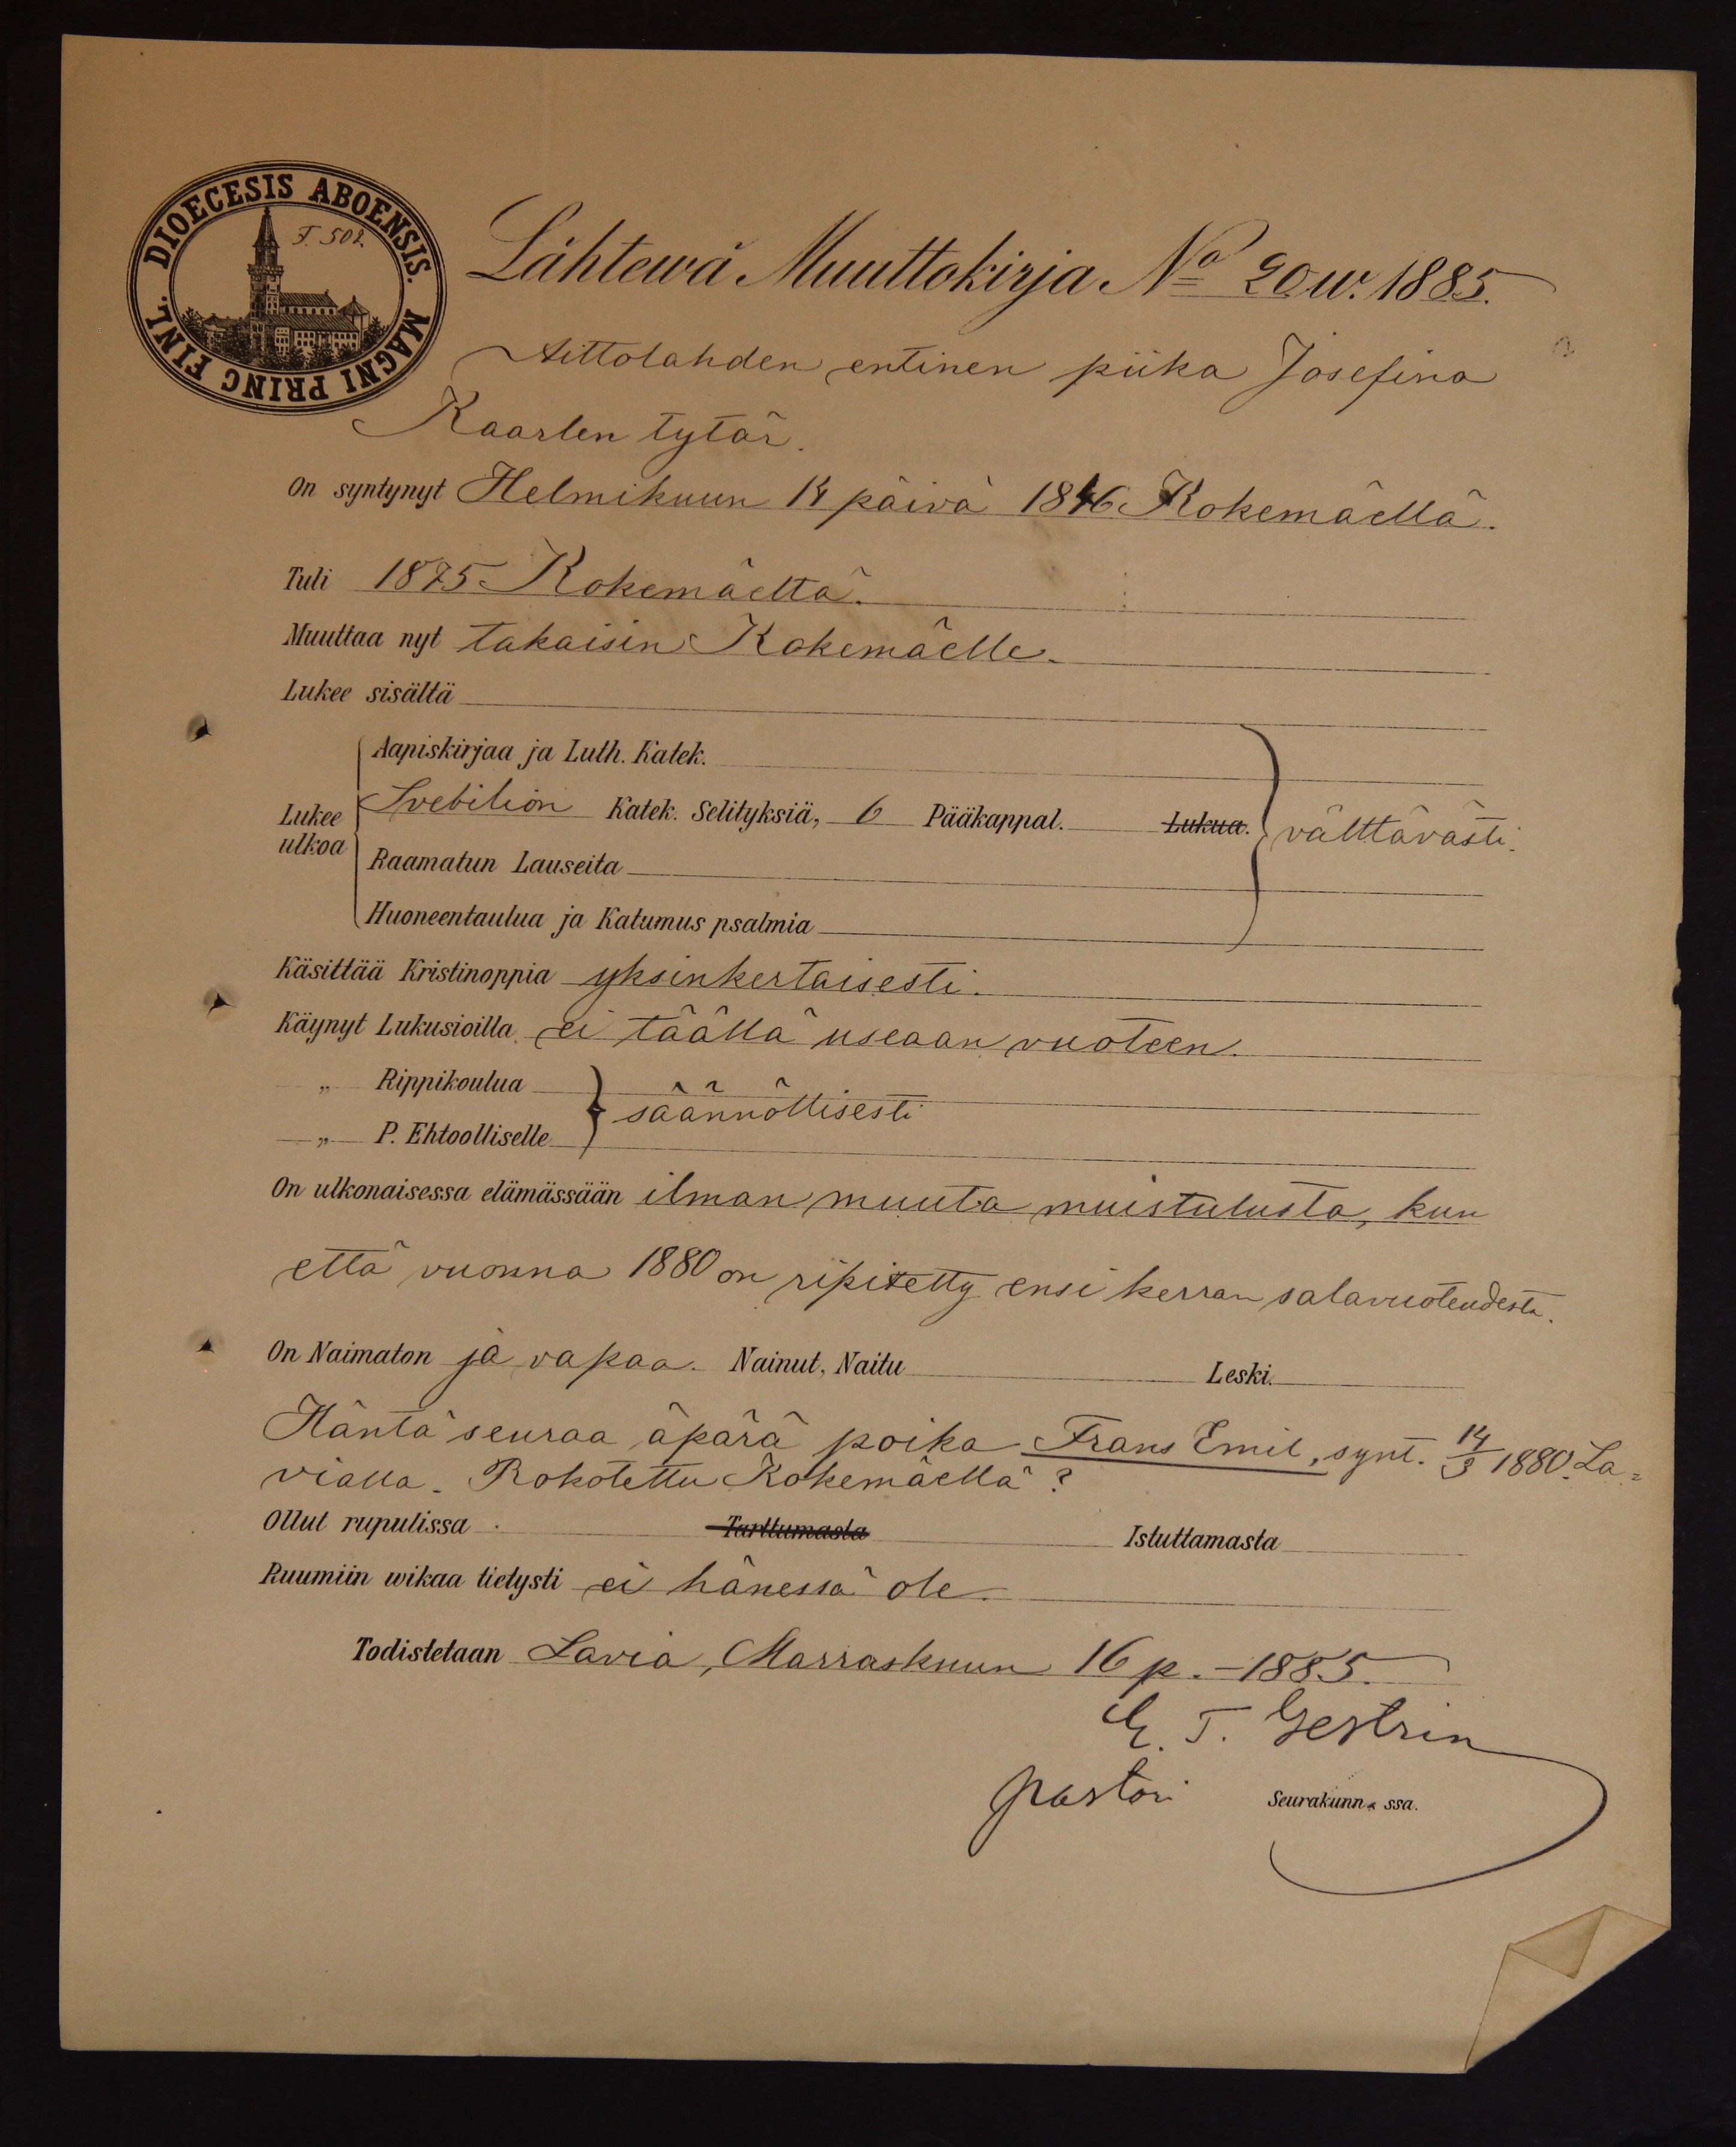 DIOECESIS ABOENSIS. MAGNI PRINC FINL.
F. 502.
Lähtewä Muuttokirja No 20 w. 1885.
Aittolahden entinen piika Josefina
Kaarlen tytär.
On syntynyt Helmikuun 14 päivä 1846 Kokemäellä.
Tuli 1875 Kokemäeltä.
Muuttaa nyt takaisin Kokemäelle.
Lukee sisältä
Aapiskirjaa ja Luth. Katek.
Lukee ulkoa Svebilion Katek. Selityksiä, 6 Pääkappal. Lukua. välttävästi.
Raamatun Lauseita
Huoneentaulua ja Katumus psalmia
Käsittää Kristinoppia yksinkertaisesti.
Käynyt Lukusioilla ei täällä useaan vuoteen.
„ Rippikoulua
säännöllisesti
„ P. Ehtoolliselle
On ulkonaisessa elämässään ilman muuta muistutusta, kun
että vuonna 1880 on ripitetty ensi kerran salavuoteudesta.
On Naimaton ja vapaa. Nainut, Naitu Leski.
Häntä seuraa äpärä poika Frans Emil, synt. 14/3 1880. La=
vialla. Rokotettu Kokemäellä?
Ollut rupulissa Tarttumasta Istuttamasta
Ruumiin wikaa tietysti ei hänessä ole.
Todistetaan Lavia, Marraskuun 16 p. - 1885.
G. T. Gestrin
pastori Seurakunn. ssa.